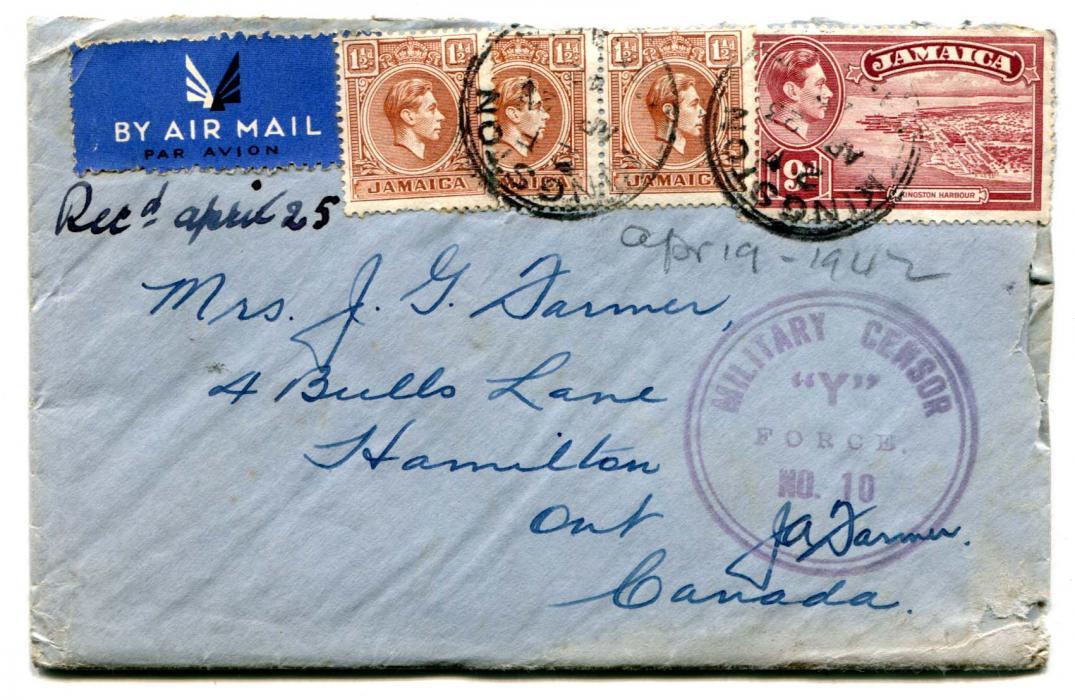 BY AIR MAIL
PAR AVION
1½d 1½d
JAMAICA
1½d
1½d 1½d
JAMAICA
JAMAICA
9d
KINGSTON HARBOUR
KINGSTON
KINGSTON
Recd april 25
apr 19 - 1942
Mrs. J. G. Farmer,
4 Bulls Lane
Hamilton
Ont
Canada.
MILITARY CENSOR
"Y"
FORCE.
NO. 10
JA Farmer.